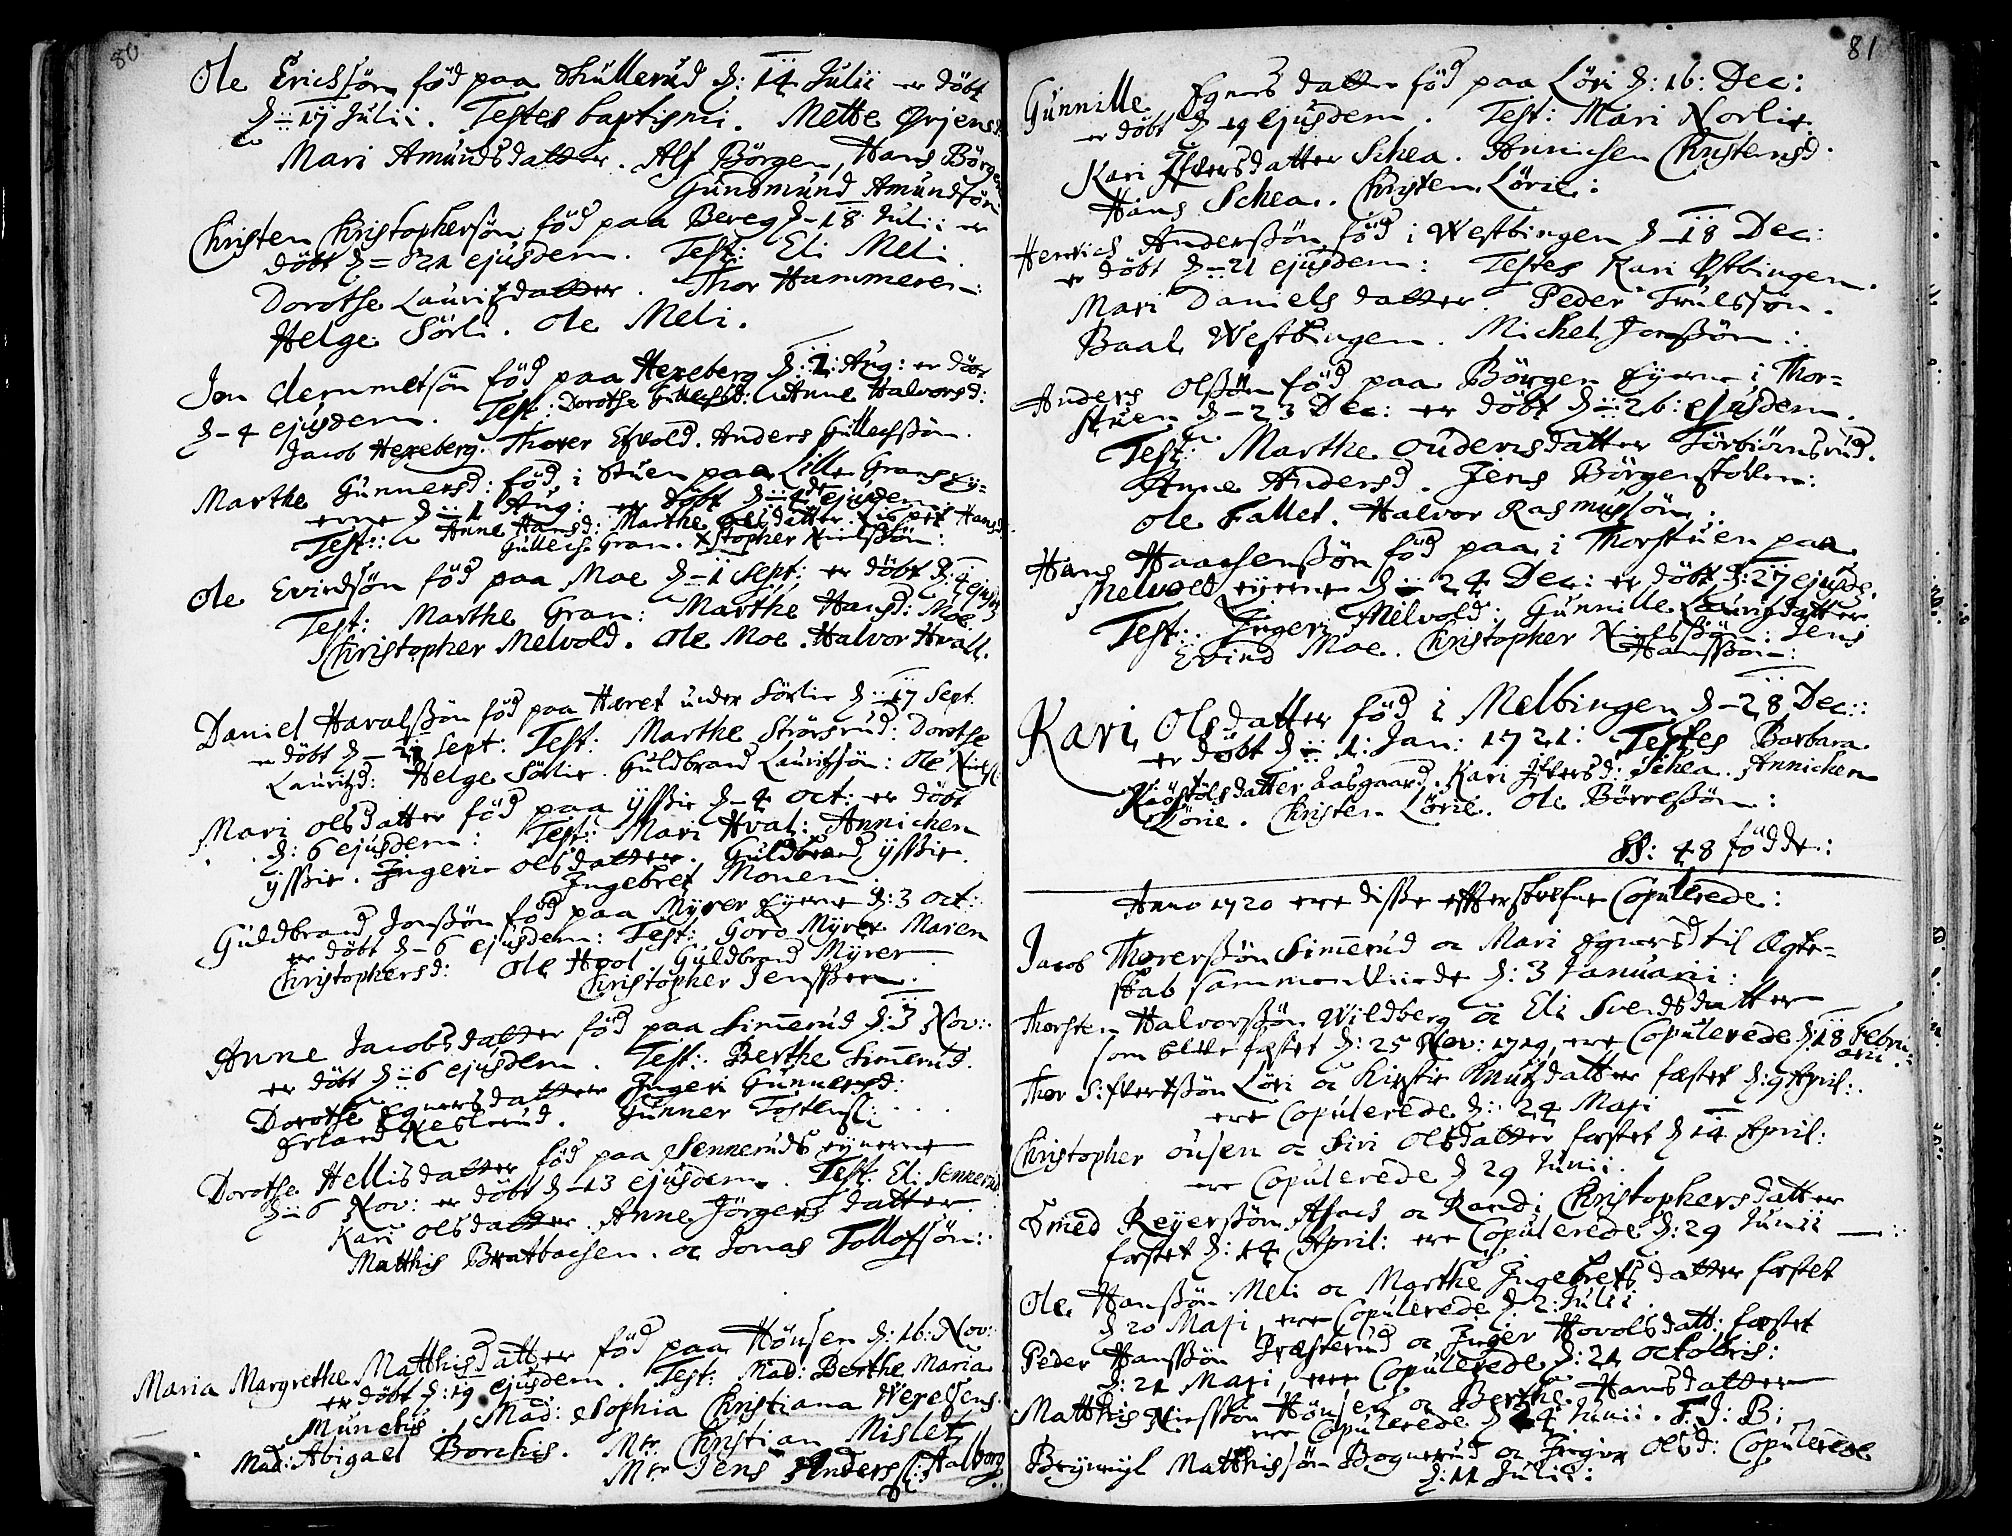 80
Ole Erichsøn fød paa Skullerud d: 14 Julii er døbt
d: 17 Julii. Testes baptismi. Mette Ørjensd
Mari Amundsdatter. Alf Børgen, Hans Børgen
Gundmund Amundsøn
Christen Christophersøn fød paa Bereg d- 18 Julii er
døbt d = 21 ejusdem. Test: Eli Meli.
Dorothe Lauritzdatter. Thor Hammeren:
Helge Sørli. Ole Meli.
Jon Clemmetsøn fød paa Hexeberg d: 1: Aug: er døbt
d- 4 ejusdem. Test: Dorothe Gullechsd: Anne Halvorsd:
Jacob Hexeberg. Thorer Efvold. Anders Gullechssøn.
Marthe Gunnersd: fød i Stuen paa Lille Grans Ey=
erne d: 1 Aug: er døbt d: 4 ejusdem
Test: Anne Hansd: Marthe Olsdatter. Hans
Gullech Gran. Xstopher Nielssøn:
Ole Evindsøn fød paa Moe d- 1 Sept: er døbt d: 4 ejusd
Test: Marthe Gran: Marthe Hansd: Moe
Christopher Melvold. Ole Moe. Halvor Hvall.
Daniel Havalssøn fød paa Haret under Sørlie d: 17 Sept
er døbt d- 21 Sept: Test: Marthe Strørsrud: Dorothe
Lauritzd: Helge Sørlie. Guldbrand Lauritzsøn: Ole Nielss:
Mari Olsdatter fød paa Ÿssie d- 4 Oct: er døbt
d: 6 ejusdem: Test: Mari Hval: Annichen
Ÿssie. Ingeri Olsdatter. Guldbrand Ÿssie.
Ingebret Monen.
Guldbrand Jonssøn fød paa Myrer Eyerne d: 3 Oct:
er døbt d- 6 ejusdem: Test: Goro Myrer Maren
Christophersd: Ole Hool Guldbrand Myrer
Christopher Jenssen.
Anne Jacobsdatter fød paa Simerud d: 3 Nov:
er døbt d: 6 ejusdem. Test: Berthe Simerud.
Dorothe Egnersdatter Ingeri Gunnersd:
Erland Neslerud. Gunner Tostenss:
Dorothe Hellisdatter fød paa Senneruds eyerne
d: 6 Nov: er døbt d- 13 ejusdem. Test: Eli Sennerud.
Kari Olsdatter. Anne Jørgensdatter.
Matthis Bratbachen. oc Jonas Tollofsøn:
Maria Margrethe Matthisdatter fød paa Hønsen d: 16: Nov:
er døbt d: 19 ejusdem. Test: Mad: Berthe Maria
Munchs. Mad: Sophia Christiana Werelsens.
Mad: Abigael Borchis. Mr. Christian Mislet,
Mr Jens Anderss: Halborg
81
Gunnille Egnersdatter fød paa Løri d: 16: Dec:
er døbt d 19 ejusdem. Test: Mari Norlie
Kari Ifversdatter Schea. Annichen Christensd.
Hans Schea. Christen Lørie:
Henrich Anderssøn fød i Westbingen d- 18 Dec:
er døbt d- 21 ejusdem: Testes Kari Østbingen.
Mari Danielsdatter. Peder Trulssøn.
Baal Westbingen. Michel Jonssøn:
Anders Olssøn fød paa Børgen Eyerne i Thor=
stuen d- 23 Dec: er døbt d: 26: ejusdem.
Test: Marthe Oudensdatter Torbiørnsrud.
Anne Andersd. Jens Børgenstollen:
Ole Fallet. Halvor Rasmussøn:
Hans Haachenssøn fød paa i Thorstuen paa
Melvold eyerne d: 24 Dec: er døbt d: 27 ejusde.
Test: Ingeri Melvold: Gunnille Lauritzdatter
Evind Moe. Christopher Nielssøn: Jens
Hanssøn:
Kari Olsdatter fød i Melbingen d- 28 Dec:
er døbt d: 1: Jan: 1721: Testes Barbara
Kiøstolsdatter Aasgaard. Kari Ifversd: Schea. Annichen
Lørie. Christen Lørie. Ole Børressøn:
SS: 48 fødde:
Anno 1720 ere disse effterskrefne Copulerede:
Jacob Thorerssøn Simerud oc Mari Egnersd til Ægte=
skab sammenviede d: 3 Januarii:
Thorsten Halvorssøn Wildberg oc Eli Svendsdatter
som blefve fæstet d: 25 Nov: 1719, ere Copulerede d: 18 Febru
arii
Thor Sifvertssøn Løri oc Kirstie Knutzdatter fæstet d: 9 April:
ere Copulerede d: 24 Maji
Christopher Ousen oc Siri Olsdatter fæstet d 14 April:
ere Copulerede d 29 Junii.
Smed Reyerssøn Asnes oc Randi Christophersdatter
fæstet d: 14 April: ere Copulerede d: 29 Junii
Ole Hanssøn Meli oc Marthe Ingebretsdatter fæstet
d 20 Maji, ere Copulerede d 2: Julii.
Peder Hanssøn Præsterud oc Inger Hovolsdatt: fæstet
d: 21 Maji, ere Copulerede d: 21 Octobris:
Matthis Nielssøn Hønsen oc Berthe Hansdatter
ere Copulerede d 24 Junii. F. J: B:
Brynnyl Matthissøn Bognerud oc Inger Olsd: Copulerede
d: 11 Julii: